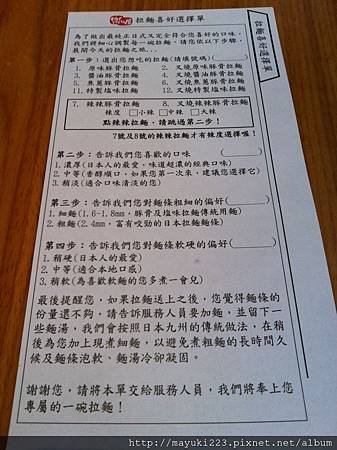 拉麵喜好選擇單
為了做出最純正日式又完全符合您喜好的口味，
我們將細心調製每一碗拉麵，請您依以下步驟，
展開今天的拉麵之旅...
第一步：選出您想吃的拉麵(請填號碼)(　　　)
1. 原味豚骨拉麵　2. 叉燒原味豚骨拉麵
3. 醬油豚骨拉麵　4. 叉燒醬油豚骨拉麵
5. 焦蔥豚骨拉麵　6. 叉燒焦蔥豚骨拉麵
11. 特製塩味拉麵　12. 叉燒特製塩味拉麵
7. 辣辣豚骨拉麵　8. 叉燒辣辣豚骨拉麵
辣度　□小辣　□中辣　□大辣
點辣辣拉麵，請跳過第二步！
7號及8號的辣辣拉麵才有辣度選擇喔！
第二步：告訴我們您喜歡的口味　(　　　)
1. 濃厚(日本人的最愛，味道超濃的經典口味)
2. 中等(香醇順口，如果您第一次來，建議您選擇它)
3. 稍淡(適合口味清淡的您)
第三步：告訴我們您對麵條粗細的偏好(　　　)
1. 細麵(1.6-1.8mm，豚骨及塩味拉麵傳統用麵)
2. 粗麵(2.4mm，富有咬勁的日本拉麵條)
第四步：告訴我們您對麵條軟硬的偏好(　　　)
1. 稍硬(日本人的最愛)
2. 中等(適合本地口感)
3. 稍軟(為喜歡軟麵的您多煮一會兒)
最後提醒您，如果拉麵送上之後，您覺得麵條的
份量還不夠，請告訴服務人員要加麵，並留下一
些麵湯，我們會按照日本九州的傳統做法，在稍
後為您加上現煮細麵，以避免煮粗麵的長時間久
候及麵條泡軟、麵湯冷卻凝固。
謝謝您，請將本單交給服務人員，我們將奉上您
專屬的一碗拉麵！
拉麵喜好選擇單
http://mayuki223.pixnet.net/album